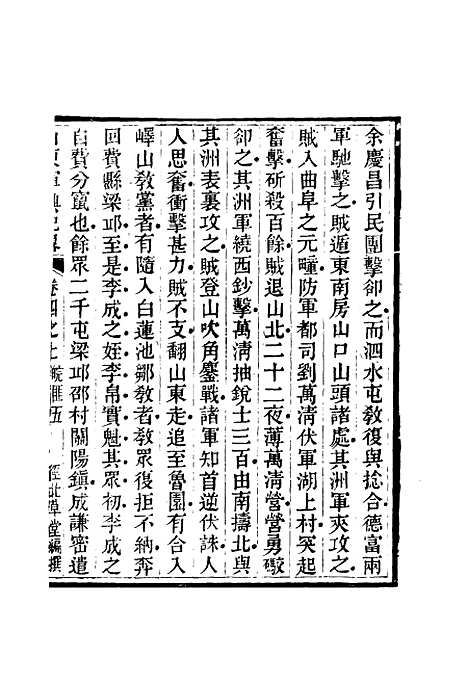 余慶昌引民團擊卻之而泗水屯敎復與捻合德富兩
軍馳擊之賊遁東南房山口山頭諸處其洲軍夾攻之
賊入曲阜之元疃防軍都司劉萬淸伏軍湖上村突起
奮擊斫殺百餘賊退山北二十二夜薄萬淸營營勇礮
卻之其洲軍繞西鈔擊萬淸抽銳士三百由南擣北與
其洲表裏攻之賊登山吹角鏖戰諸軍知首逆伏誅人
人思奮衝擊甚力賊不支翻山東走追至魯園有合入
嶧山敎黨者有隨入白蓮池鄒敎者敎眾復拒不納弃
回費縣梁邱至是李成之姪李帛實魁其眾初李成之
自費分竄也餘眾二千屯梁邱邵村關陽鎮成謙密遣
山東軍興紀畧 卷四之七 皖匪五 經此草堂編撰